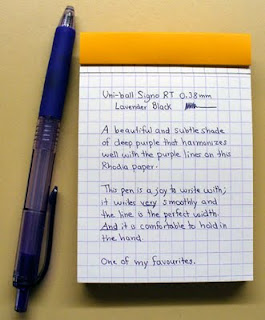 Uni-ball Signo RT 0.38mm
Lavender Black
A beautiful and subtle shade
of deep purple that harmonizes
well with the purple lines on this
Rhodia paper.
This pen is a joy to write with;
it writes very smoothly and
the line is the perfect width.
And it is comfortable to hold in
the hand.
One of my favourites.